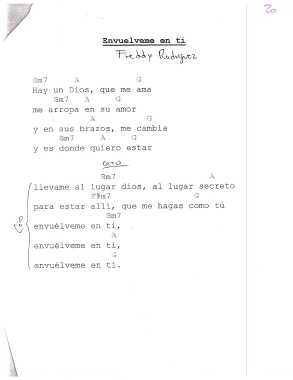 20
Envuelveme en ti
Freddy Rodriguez
Bm7 A G
Hay un Dios, que me ama
Bm7 A G
me arropa en su amor
A G
y en sus brazos, me cambia
Bm7 A G
y es donde quiero estar
Coro
Bm7 A
llevame al lugar dios, al lugar secreto
F#m7 G
para estar allí, que me hagas como tú
Bm7
Coro
envuélveme en ti,
A
envuélveme en ti,
G
envuélveme en ti.